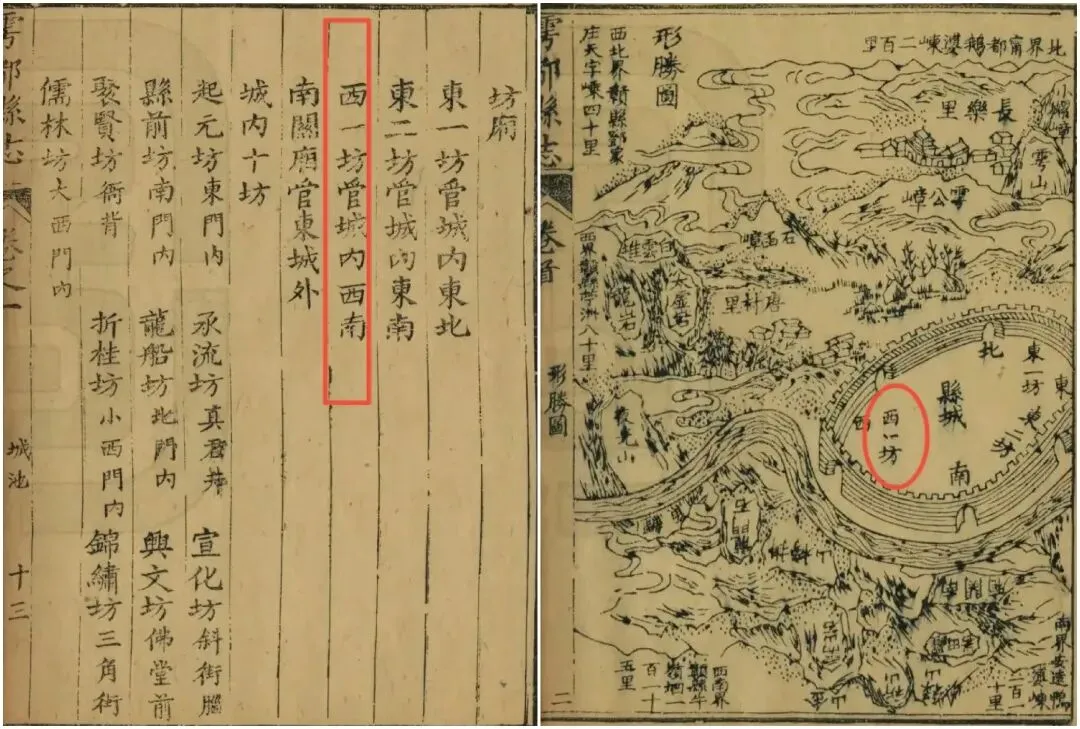 坊廂
東一坊管城内東北
東二坊管城内東南
西一坊管城内西南
南關廂官東城外
城内十坊
起元坊東門内 承流坊真君井 宣化坊斜街腦
縣前坊南門内 龍船坊北門内 興文坊佛堂前
聚賢坊衙背 折桂坊小西門内 錦繡坊三角街
儒林坊大西門内
雩都縣志
卷之一
城池
十三
北界甯都鵝婆崠二百里
形勝圖
西北界贛縣鄧家
庄天字崠四十里
長樂里
雩山
雩公嶂
石
嶂
白雲
龍岩
太
岩
里
西界贛縣
洲八十里
夜光山
北
東
東一坊
二坊
縣城
西
西一坊
南
形勝圖
卷首
二
西南界
贛縣牛
一
百一十
五里
南界安遠
二百一
十里